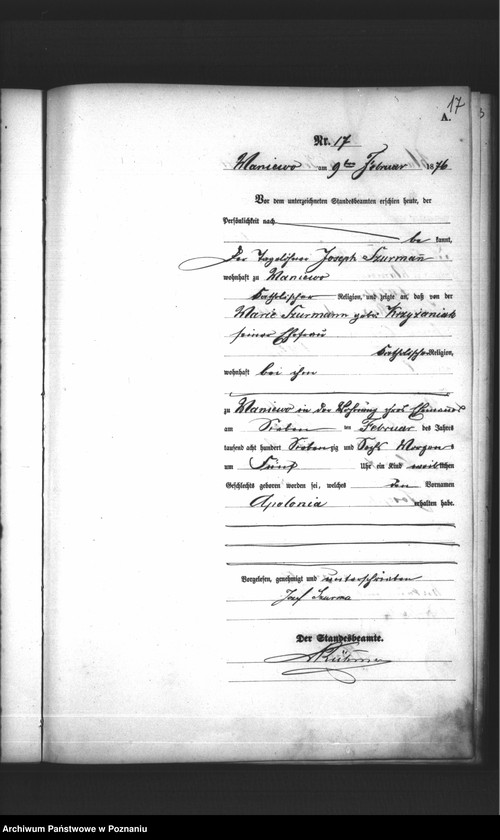 17
A.
Nr. 17
Maniewo am 9ten Februar 1876
Vor dem unterzeichneten Standesbeamten erschien heute, der
Persönlichkeit nach
be kannt,
Der Tagelöhner Joseph Szurmann
wohnhaft zu Maniewo
Katholischer Religion, und zeigte an, daß von der
Marie Szurmann geb. Krzyżaniak
seiner Ehefrau
Katholischer Religion,
wohnhaft bei ihm
zu Maniewo in der Wohnung ihres Ehmanns
am Sieben ten Februar des Jahrs
tausend acht hundert Siebenzig und Sechs Morgens
um Fünf Uhr ein Kind weiblichen
Geschlechts geboren worden sei, welches den Vornamen
Apolonia erhalten habe.
Vorgelesen, genehmigt und unterschrieben
Jozef Szurma
Der Standesbeamte.
Archiwum Państwowe w Poznaniu